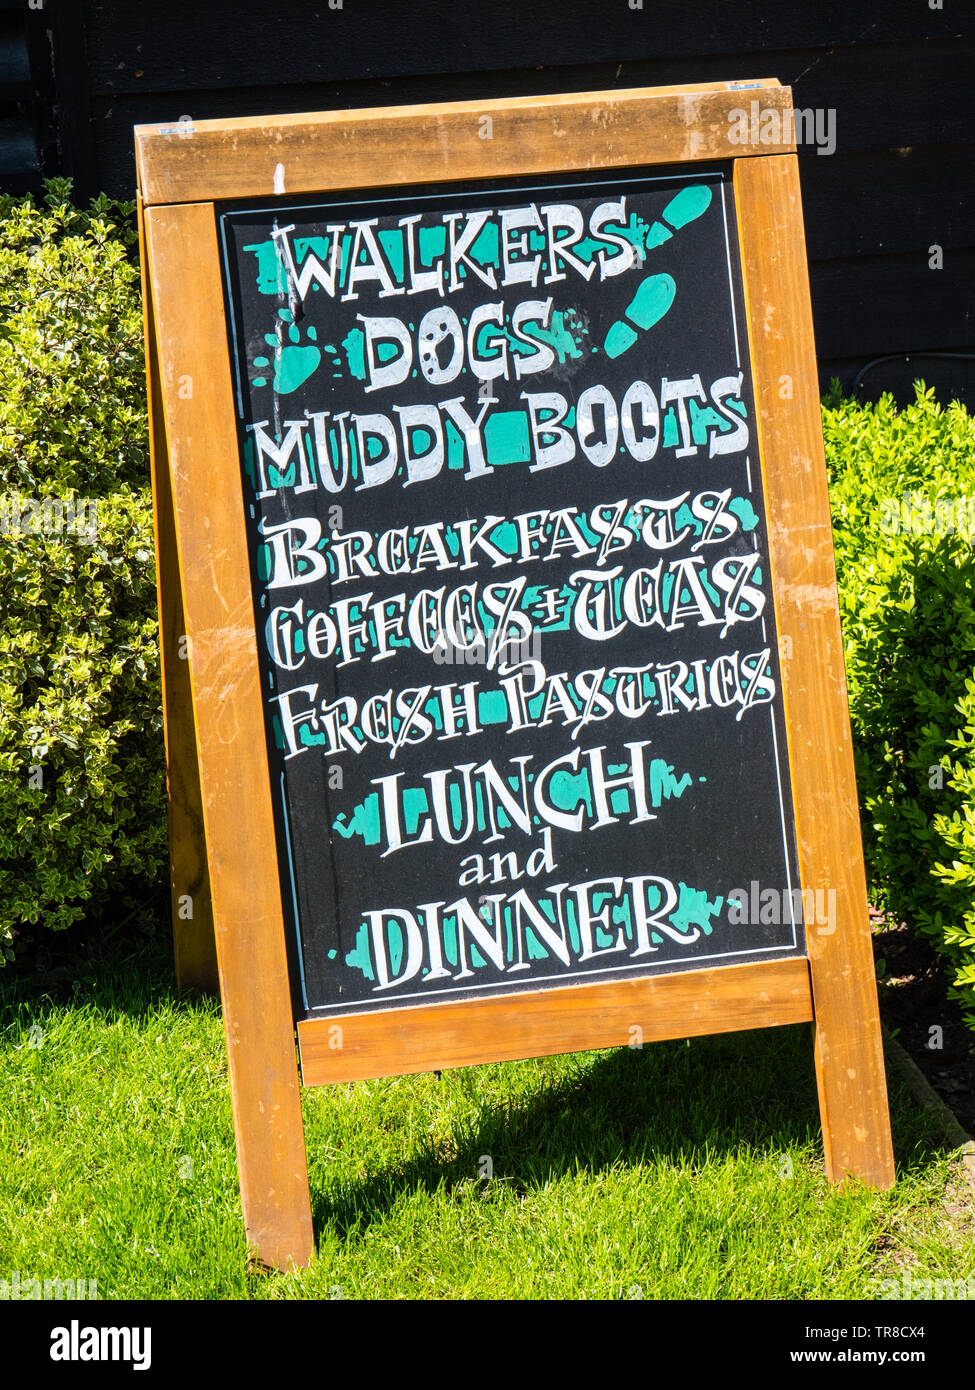 WALKERS
DOGS
MUDDY BOOTS
BREAKFASTS
COFFEES + TEAS
FRESH PASTRIES
LUNCH
and
DINNER
alamy
Image ID: TR8CX4
www.alamy.com